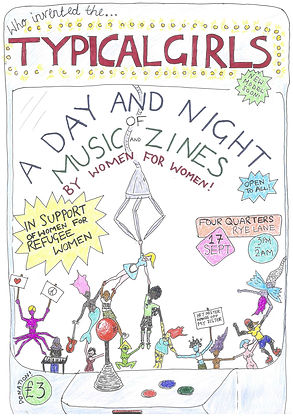 Who invented the...
TYPICAL GIRLS
NEW MODEL SOON!
A DAY AND NIGHT
OF
MUSIC AND ZINES
BY WOMEN FOR WOMEN!
OPEN TO ALL!
IN SUPPORT
OF WOMEN FOR
REFUGEE
WOMEN
FOUR QUARTERS
RYE LANE
17
SEPT
2AM
DONATION
£3